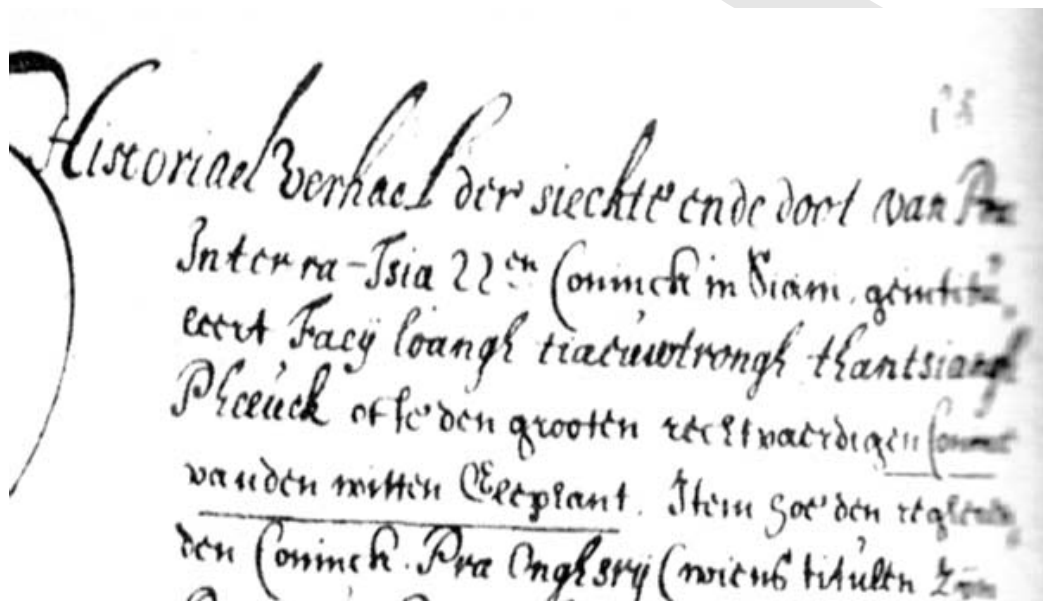 Historiael Verhael der sieckte ende doot van Pra
Interra-Tsia 22en Coninck in Siam, geintitu
leert Facij loangh tiaeuwtrongh thantsiangh
Pheeuck ofte den grooten rechtvaerdigen Coninck
vanden witten Eleephant. Item hoe den regeeren
den Coninck. Pra Onghsrij (wiens titulen zijn